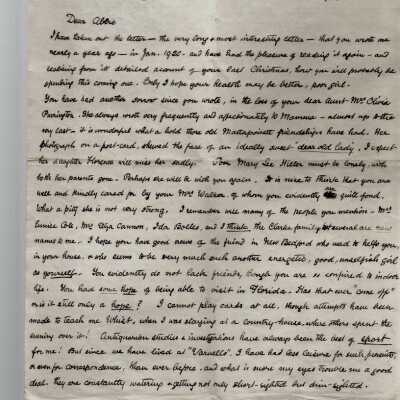 Dear Abbie
I have taken out the letter — the very long & most interesting letter — that you wrote me
nearly a year ago — in Jan. 1920 — and have had the pleasure of reading it again — and
realising from its detailed account of your last Christmas, how you will probably be
spending this coming one. Only I hope your health may be better, poor girl.
You have had another sorrow since you wrote, in the loss of your dear Aunt Mrs Clivie
Purington. She always wrote very frequently and affectionately to Mamma — almost up to the
very last — it is wonderful what a hold those old Mattapoisett friendships have had. Her
photograph on a post-card, shewed the face of an ideally sweet "dear old lady". I expect
her daughter Florence will miss her sadly. Poor Mary Lee must be lonely with
both her parents gone. Perhaps she will be with you again. It is nice to think that you are
well and kindly cared for by your Mrs Watson, of whom you evidently are quite fond.
What a pity she is not very strong. I remember well many of the people you mention — Mrs
Eunice Cole, Mrs Cannon, Ida Bolles, and I think the Clarke family — several are new
names to me. I hope you have good news of the friend in New Bedford who used to help you,
in your house, & who seems to be very much such another energetic, good, unselfish girl
as yourself. You evidently do not lack friends though you are so confined to indoor
life. You had some hope of being able to visit in Florida. Has that ever "come off"
or is it still only a hope? I cannot play cards at all, though attempts have been
made to teach me Whist, when I was staying at a country-house, where others spent the
evening over it! Antiquarian studies & investigations have always been the best of sport
for me! But since we have lived at I have had less leisure for such pursuits,
or even for correspondence, than ever before, and what is more my eyes trouble me a good
deal. They are constantly watering & getting not only short-sighted but dim-sighted.